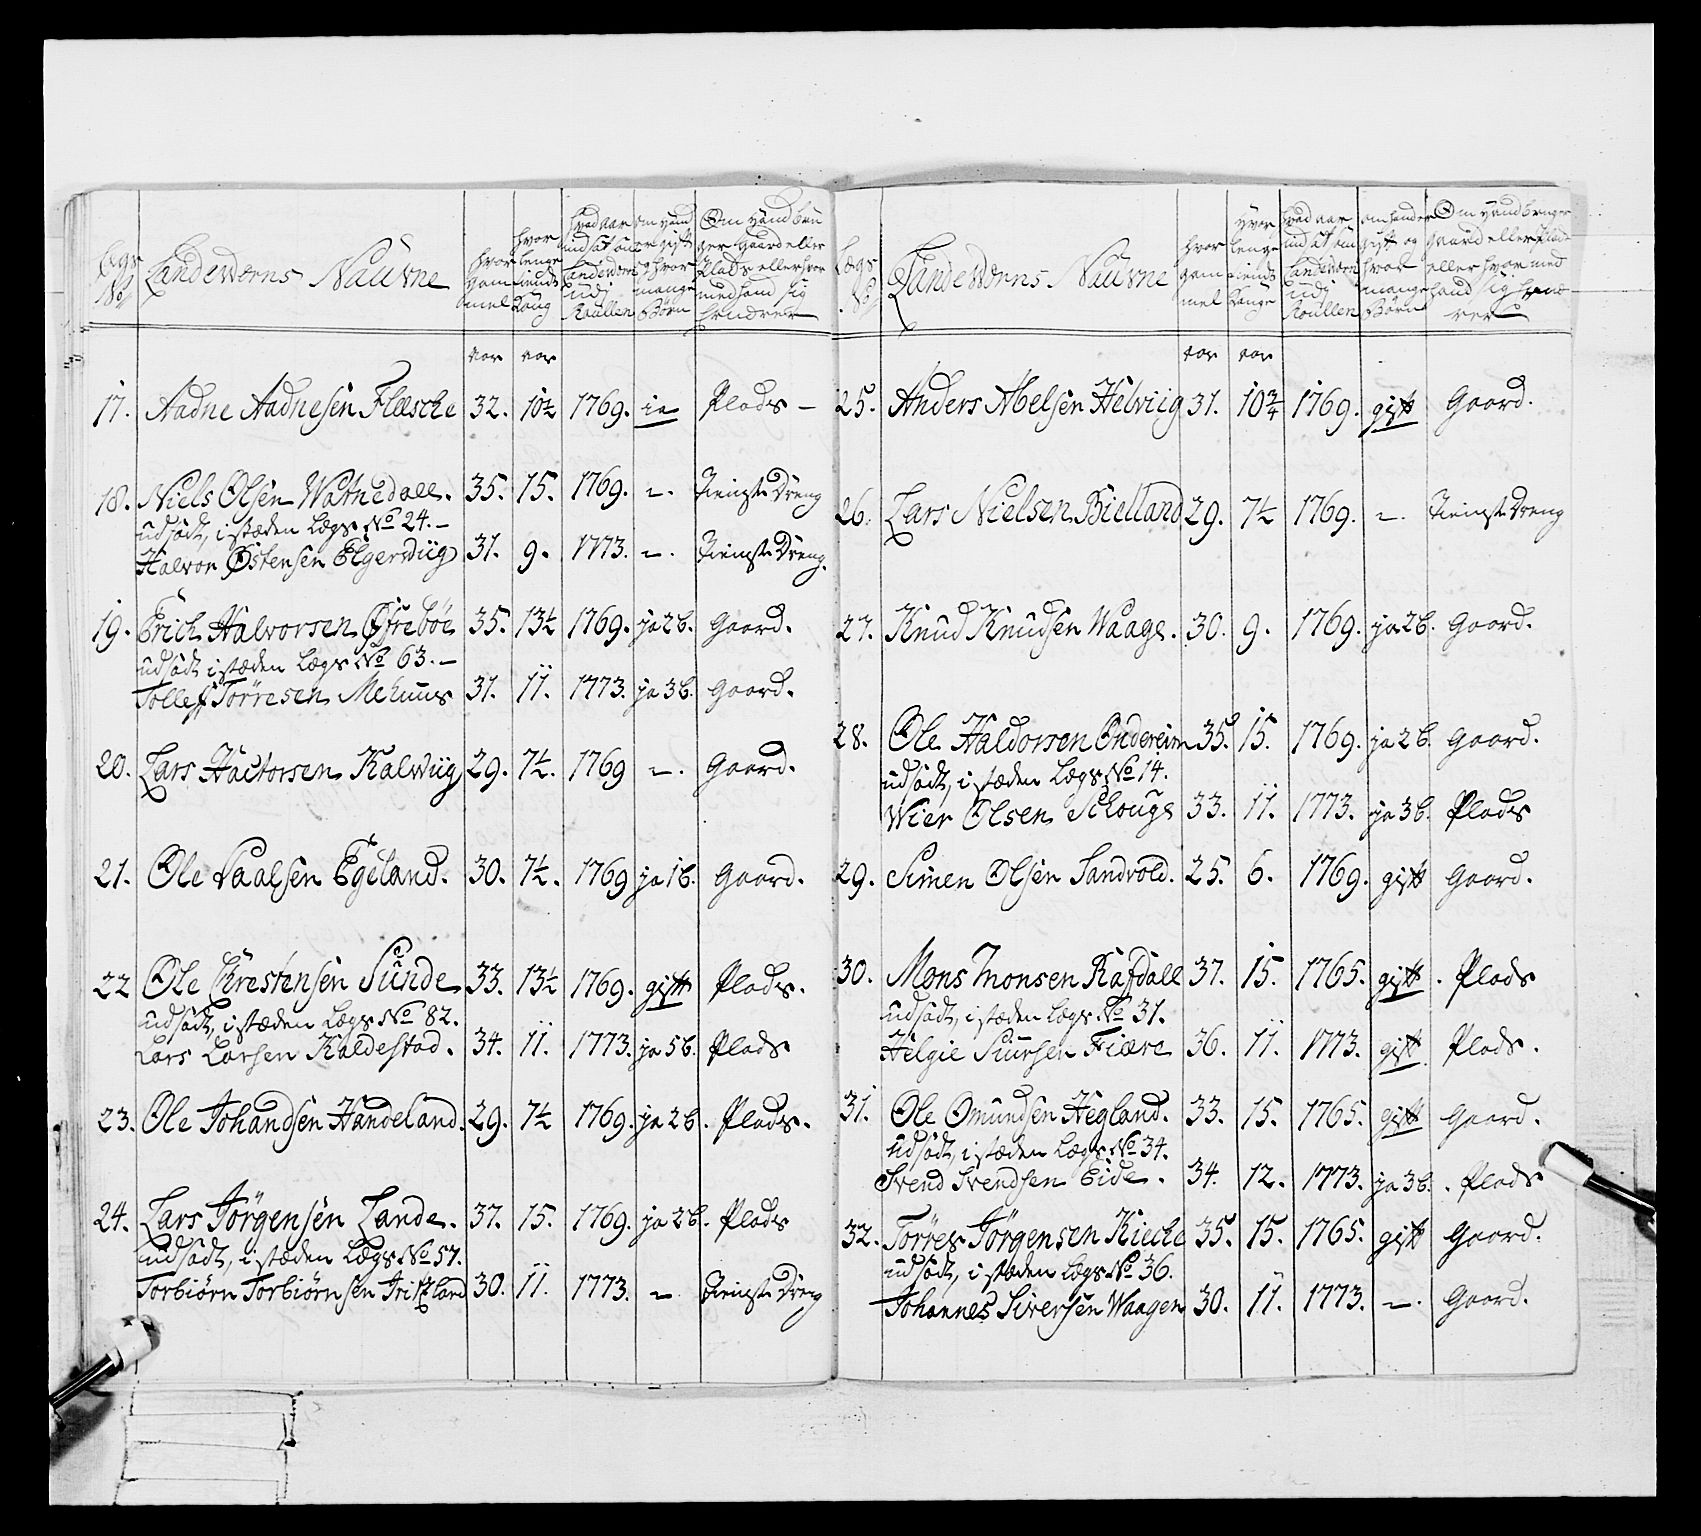 Lægs No | Landeværns Naufne | hvor gam mel | hvor lenge tient Kong | hvad aar ud sat on Landeværn udj Roullen | om hand er gift og hvor mange Børn | Om hand bru ger Gaard eller Plads eller hvor med hand sig Ernærer
aar aar
17. Aadne Aadnesen Flæsche 32. 10½ 1769. ia Plads –
18. Niels Olsen Watnedall. 35. 15. 1769. –. Tieniste Dreng
udsadt, i stæden Lægs No 24. –
Halvor Østensen Elgersviig 31. 9. 1773. –. Tieniste Dreng.
19. Erich Halvorsen Øfrebøe 35. 13½ 1769. ja 2b. Gaard.
udsadt i stæden Lægs No 63. –
Tollef Tørresen Mehuus 31. 11. 1773. ja 3b. Gaard.
20. Lars Hactorsen Kalwiig 29. 7½. 1769 –. Gaard.
21. Ole Paalsen Egeland. 30. 7½. 1769 ja 1b. Gaard.
22 Ole Chrestensen Sunde 33. 13½ 1769. gift Plads.
udsadt, i stæden Lægs No 82.
Lars Larsen Kaldestad. 34. 11. 1773. ja 5b. Plads
23. Ole Johandsen Handeland. 29. 7½ 1769. ja 2b. Plads.
24. Lars Jørgensen Lande. 37. 15. 1769. ja 2b. Plads
udsadt, i stæden Lægs No 57.
Torbiørn Torbiørnsen 30. 11. 1773. – Tieniste Dreng
Lægs No | Landeværns Naufne | hvor gam mel | hvor lenge tient Konge | hvad aar ud sat om Landeværn udj Roullen | om hand er gift og hvor mange Børn | Om hand bruger Gaard eller Plads eller hvor med hand sig Ernærer
aar aar
25. Anders Abelsen Helviig 31. 10¾ 1769. gift Gaard.
26. Lars Nielsen Bielland 29. 7½ 1769. –. Tieniste Dreng
27. Knud Knudsen Waage. 30. 9. 1769. ja 2b. Gaard.
28. Ole Haldorsen Ondereim 35. 15. 1769. ja 2b. Gaard.
udsadt, i stæden Lægs No 14.
Wier Olsen Schouge 33. 11. 1773. ja 3b. Plads
29. Simen Olsen Sandvold. 25. 6. 1769. gift Gaard.
30. Mons Monsen Rafdall 37. 15. 1765. gift. Plads
udsadt, i stæden Lægs No 31.
Helgie Siursen Fiære 36. 11. 1773. gift Plads.
31. Ole Omundsen Hegland. 33. 15. 1765. gift Gaard.
udsadt, i stæden Lægs No 34.
Svend Svendsen Eide. 34. 12. 1773. ja 3b. Plads
32. Tørres Jørgensen Kieche 35. 15. 1765. gift Gaard.
udsadt, i stæden Lægs No 36.
Johannes Siversen Waagen 30. 11. 1773. –. Gaard.